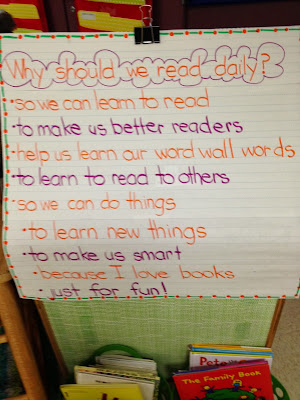 Why should we read daily?
•so we can learn to read
•to make us better readers
•help us learn our word wall words
•to learn to read to others
•so we can do things
•to learn new things
•to make us smart
•because I love books
•just for fun!
The Family Book